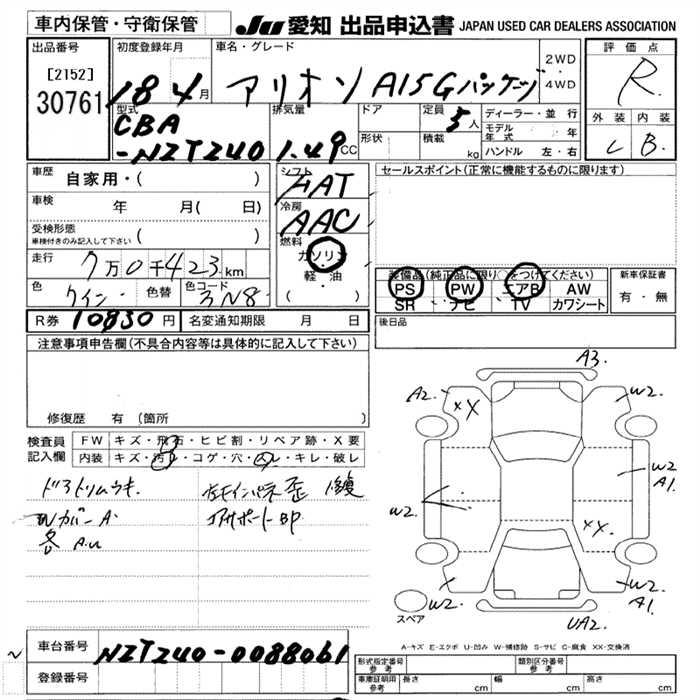 車内保管・守衛保管
JU 愛知 出品申込書 JAPAN USED CAR DEALERS ASSOCIATION
出品番号
[2152]
30761
初度登録年月
18 4月
車名・グレード
アリオン A15Gパッケージ
2WD
・
4WD
評価点
R
外装 内装
C B
型式
CBA
-NZT240
排気量
1.49 CC
ドア
形状
定員
5人
積載
kg
ディーラー・並行
モデル年式 年
ハンドル 左・右
車歴 自家用・( )
車検 年 月( 日)
受検形態
車検付きのみ記入して下さい ( )
走行 7万0千423km
色 ワイン 色替 色コード 3N8
R券 10830円 名変通知期限 月 日
シフト
FAT
冷房
AAC
燃料
ガソリン
・
軽・油
( )
セールスポイント(正常に機能するものに限ります)
装備品(純正品に限り○をつけてください)
PS PW エアB AW
SR ナビ TV カワシート
新車保証書
有・無
後日品
注意事項申告欄(不具合内容等は具体的に記入して下さい)
修復歴 有(箇所 )
検査員記入欄
FW キズ・飛石・ヒビ割・リペア跡・X要
内装 キズ・汚れ・コゲ・穴・のレ・キレ・破レ
ドアトリムウキ
Wカバー A
各 A.U
左右インパネ歪 修復
コアサポートBP
A3.
A2.
XX
W2.
W2
A1.
W2.
XX.
W2.
W2
A1.
UA2.
スペア
A-キズ E-エクボ U-凹み W-補修跡 S-サビ C-腐食 XX-交換済
車台番号 NZT240-0088061
登録番号
形式指定番号
参考
類別区分番号
参考
車庫証明用
参考
長さ cm 幅 cm 高さ cm